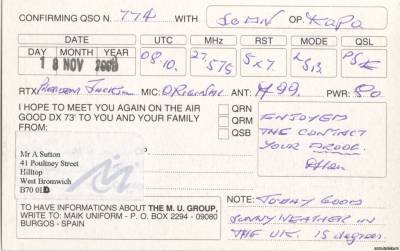 CONFIRMING QSO N. 774 WITH JOHN OP. KAPA
DATE UTC MHz RST MODE QSL
DAY MONTH YEAR 08 27.575 5x7
18 NOV 2008 10.
RTX: President Jackson MIC: ORIGINAL ANT: A99. PWR: 80
I HOPE TO MEET YOU AGAIN ON THE AIR
GOOD DX 73' TO YOU AND YOUR FAMILY
FROM:
QRN
QRM
QSB
ENJOYED
THE CONTACT
YOUR
Mr A Sutton
41 Poultney Street
Hilltop
West Bromwich
B70
TO HAVE INFORMATIONS ABOUT THE M. U. GROUP.
WRITE TO: MAIK UNIFORM - P. O. BOX 2294 - 09080
BURGOS - SPAIN
NOTE: TODAY GOOD
SUNNY WEATHER IN
THE UK. 15 degrees.